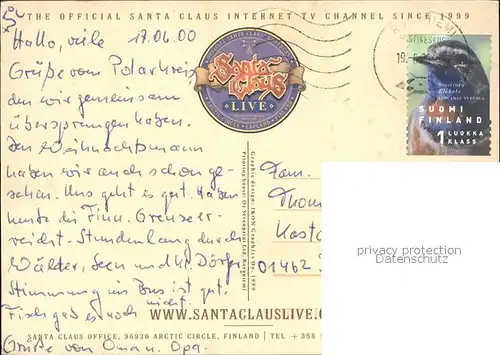 THE OFFICIAL SANTA CLAUS INTERNET TV CHANNEL SINCE 1999
Hallo, viele 18.06.00
Grüße vom Polarkreis
den wir gemeinsam
übersprungen haben.
Den Weihnachtsmann
haben wir auch schon ge-
sehen. Uns geht es gut. Haben
heute die Finn. Grenze er-
reicht - Stundenlang durch
Wälder, Seen und kl. Dörfer
Stimmung im Bus ist gut.
Fisch gab es noch nicht.
Grüße von Oma u. Opa.
Santa
Claus
LIVE
SUOMI
FINLAND
1 LUOKKA
KLASS
Graphic design: IKON Graphics Oy, 1999
Fam.
Thom
Kasta
01462
privacy protection
Datenschutz
WWW.SANTACLAUSLIVE.
SANTA CLAUS OFFICE, 96930 ARCTIC CIRCLE, FINLAND | TEL + 358